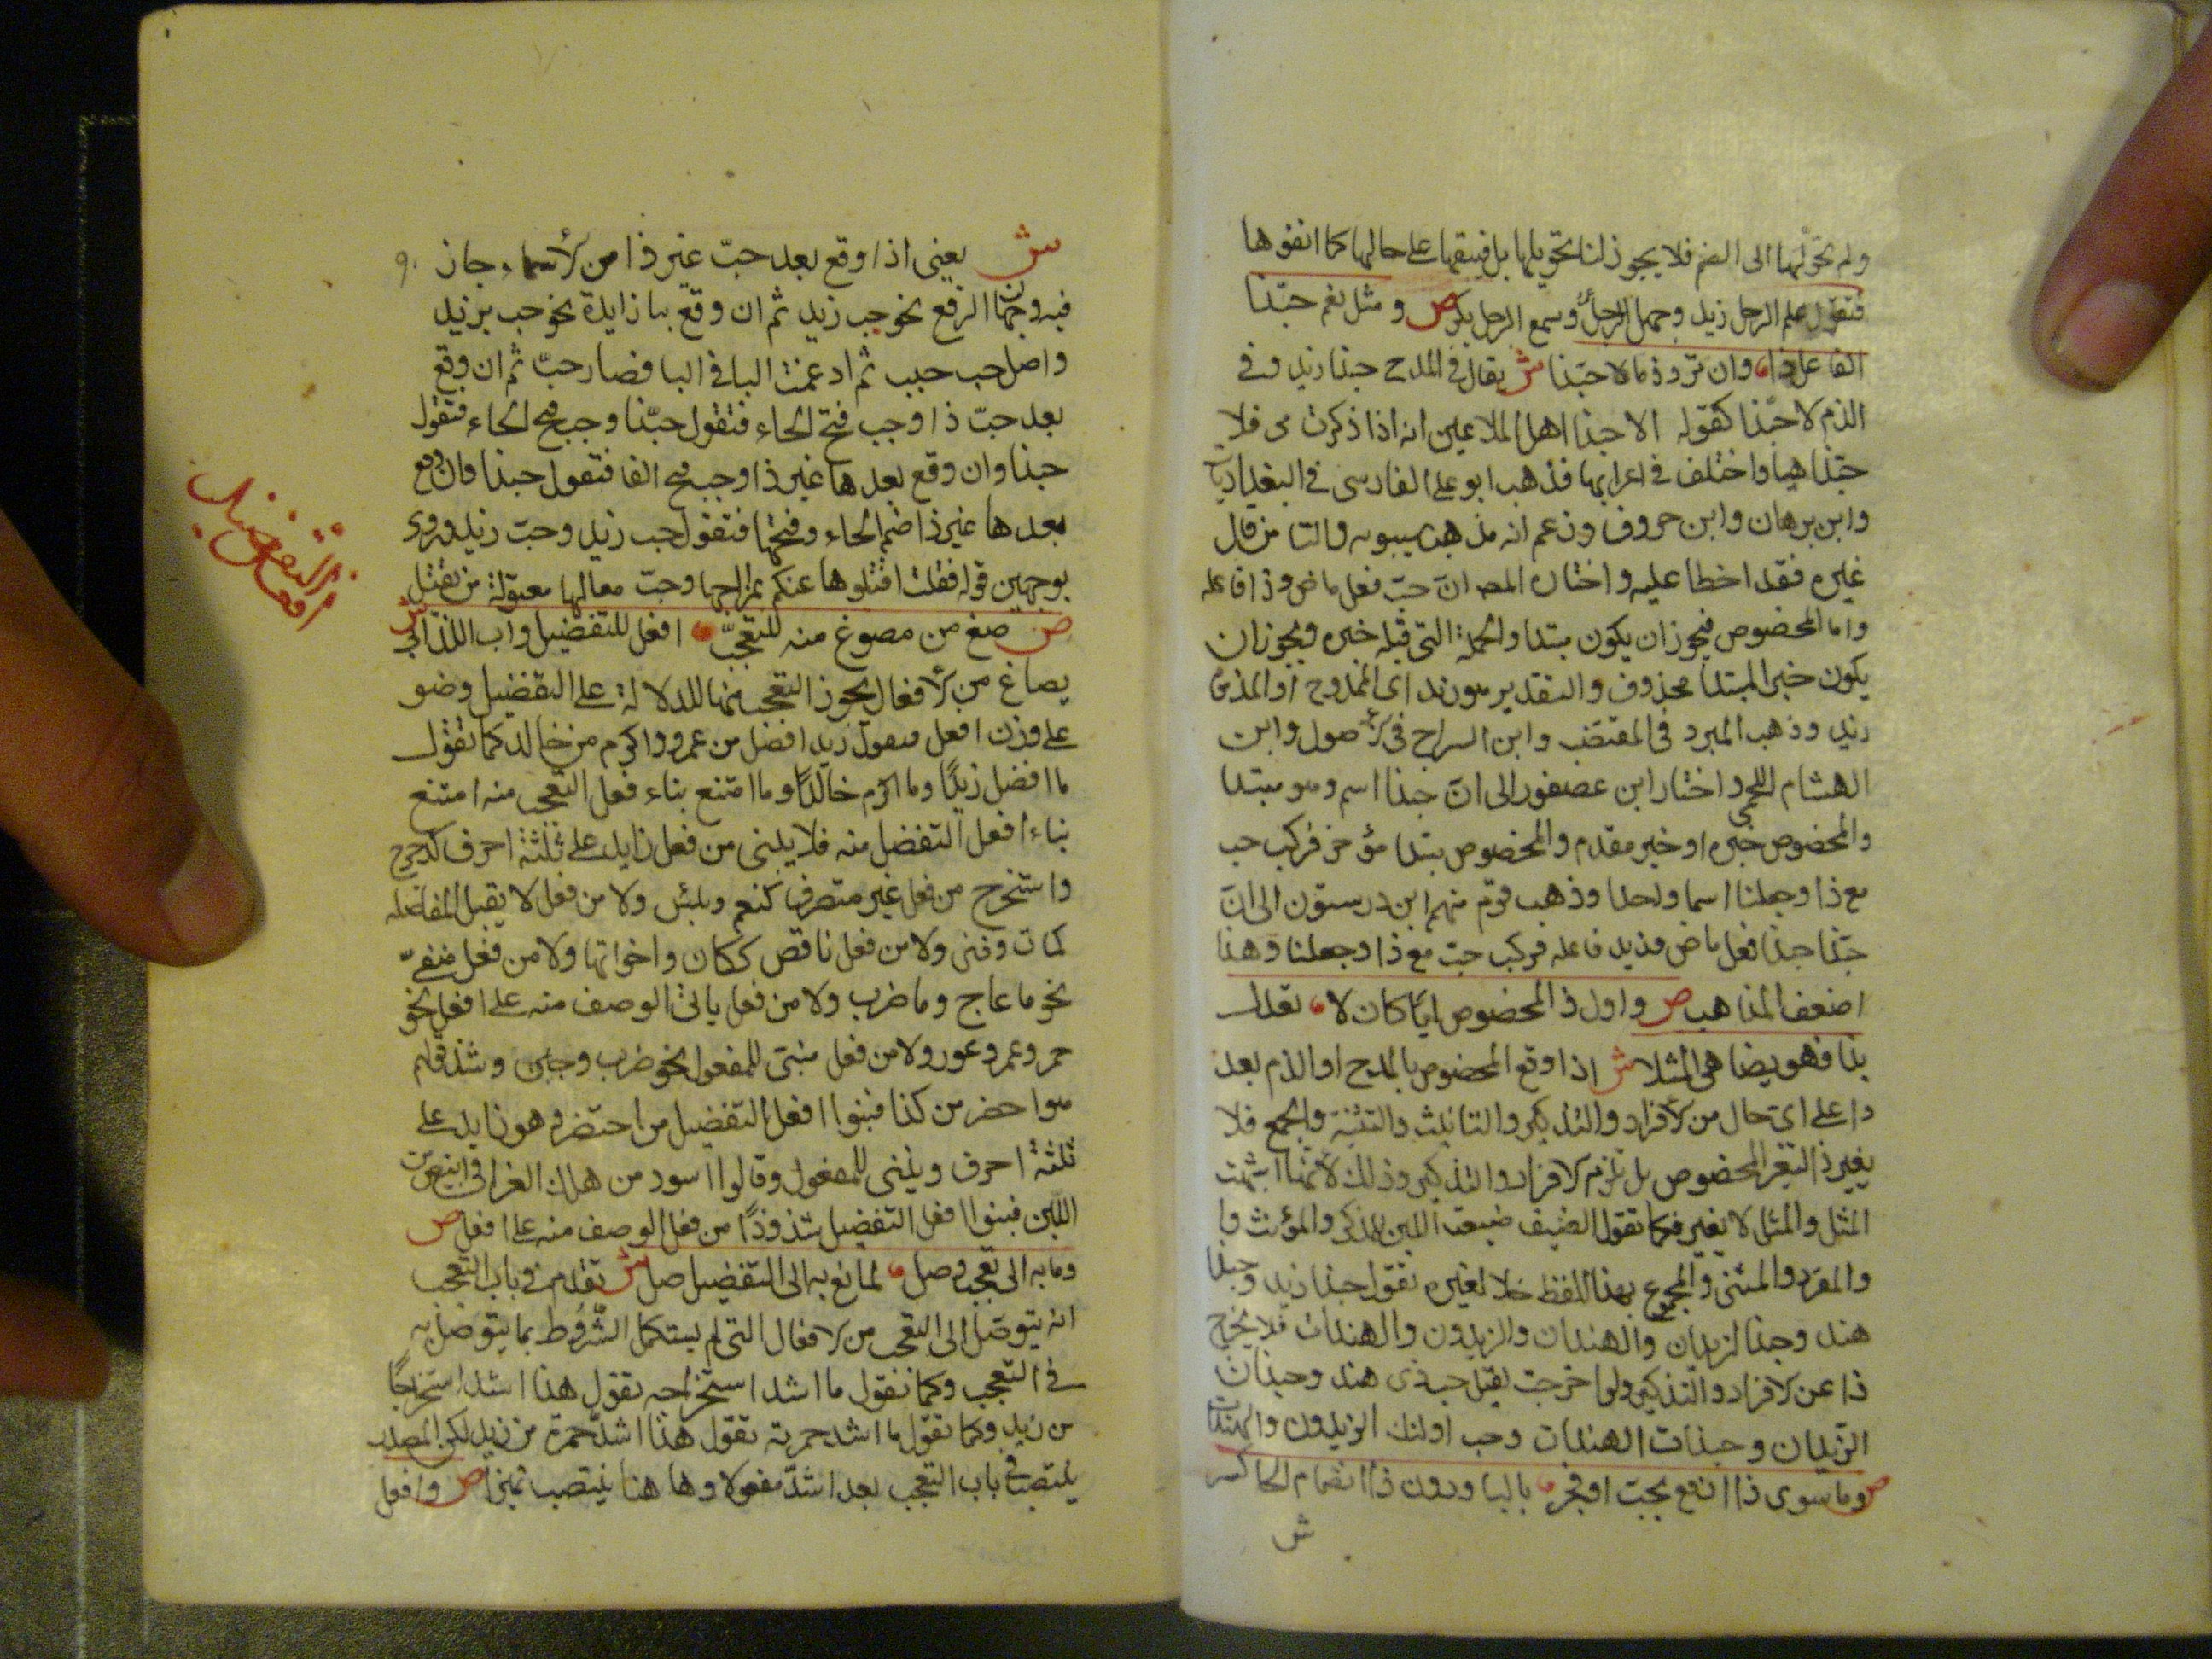 ولم تحولها الى الضم فلا يجوز لنا تحويلها بل نبقيها على حالها كما ابقوها
فتقول علم الرجل زيد وجهل الرجل وسمع الرجل بكر ص ومثل نعم حبذا
الفاعل ذا وان ترد ذما لا حبذا ش يقال في المدح حبذا زيد وفي
الذم لا حبذا كقوله الا حبذا اهل الملا غير انه اذا ذكرت مي فلا
حبذا هيا واختلف في اعرابها فذهب ابو على الفارسى في البغداديات
وابن برهان وابن خروف وزعم انه مذهب سيبويه وان من قال
غيره فقد اخطا عليه واختاره المص ان حب فعل ماض وذا فاعله
واما المخصوص فيجوز ان يكون مبتدا والجملة التى قبله خبره ويجوز ان
يكون خبر المبتدا محذوف والتقدير هو زيد اى الممدوح او المذموم
زيد وذهب المبرد في المقتضب وابن السراج في الأصول وابن
الهشام اللخمى واختار ابن عصفور الى انّ حبذا اسم وهو مبتدا
والمخصوص خبره او خبر مقدم والمخصوص مبتدا مؤخر فركب حب
مع ذا وجعلنا اسما واحدا وذهب قوم منهم ابن درستون الى انّ
حبّذا حبذا فعل ماض وزيد فاعله فركب حبّ مع ذا وجعلنا وهذا
اضعف المذاهب ص واول ذا المخصوص ايّا كان لا تعدل
بذا فهو يضاهى المثلا ش اذا وقع المخصوص بالمدح او الذم بعد
ذا على اى حال من الأفراد والتذكير والتانيث والتثنية والجمع فلا
يغير ذا لتغير المخصوص بل تلزم الافراد والتذكير وذلك لأنها اشبهت
المثل والمثل لا يغير فكما تقول الصيف ضيعت اللبن للمذكر والمؤنث
والمفرد والمثنى والمجموع بهذا اللفظ فلا تغيره تقول حبذا زيد وحبذا
هند وحبذا الزيدان والهندان والزيدون والهندات فلا يخرج
ذا عن الافراد والتذكير ولو اخرجت لقيل حبذى هند وحبذان
الزّيدان وحبتان الهندان وحب اولئك الزيدون والهندات
ص وما سوى ذا ارفع بحب او فجر بالبا ودون ذا انضمام الحا كثر
ش
ش يعنى اذا وقع بعد حبّ غير ذا من الأسماء جاز
فيه وجهان الرفع نحو حب زيد ثم ان وقع ببا زايدة نحو حب بزيد
واصل حب حبب ثم ادغمت البا في البا فصار حبّ ثم ان وقع
بعد حبّ ذا وجب فتح الحاء فتقول حبّذا وجب فتح الحاء فتقول
حبذا وان وقع بعدها غير ذا وجب فتح الفا فتقول حبذا وان وقع
بعدها غير ذا ضم الحاء وفتحها فتقول حب زيد وحبّ زيد وروى
بوجهين قوله فقلت اقتلوها عنكم بمزاجها وحبّ معالها مقتولة من تقتل
ص صغ من مصوغ منه للتعجّب افعل للتفضيل وأب اللذ ابى ش
يصاغ من الأفعال يجوز التعجب منها للدلالة على التفضيل وضو
على وزن افعل فتقول زيد افضل من عمرو واكرم من خالد كما تقول
ما افضل زيدًا وما اكرم خالدًا وما امتنع بناء فعل التعجب منه امتنع
بناء افعل التفضيل منه فلا يبنى من فعل زايد على ثلثة احرف كدحرج
واستخرج من فعل غير متصرف كنعم وبئس ولا من فعل لا يقبل المفاضله
كمات وفنى ولا من فعل ناقص ككان واخواتها ولا من فعل منفىّ
نحو ما عاج وما ضرب ولا من فعل ياتى الوصف منه على افعل نحو
حمر وعمر وعور ولا من فعل مبنى للمفعول نحو ضرب وجبن وشذ قولهم
هو احضر من كذا فبنوا افعل التفضيل من احتضر وهو زايد على
ثلثة احرف ويبنى للمفعول وقالوا اسود من هلك الغراب وابيض من
اللبن فبنوا افعل التفضيل شذوذًا من فعل الوصف منه على افعل ص
وما به الى تعجب وصل لمانع به الى التفضيل صل ش تقدم في باب التعجب
انه يتوصّل الى التعجب من الافعال التى لم يستكمل الشّروط بما يتوصل به
في التعجب وكما تقول ما اشد استخراجه تقول هذا اشد استخراجًا
من زيد وكما تقول ما اشد حمرته تقول هذا اشدّ حمرة من زيد لكن المصدر
ينتصب في باب التعجب بعد اشدّ مفعولا وها هنا ينتصب تميزا ص وافعل
افعل التفضيل